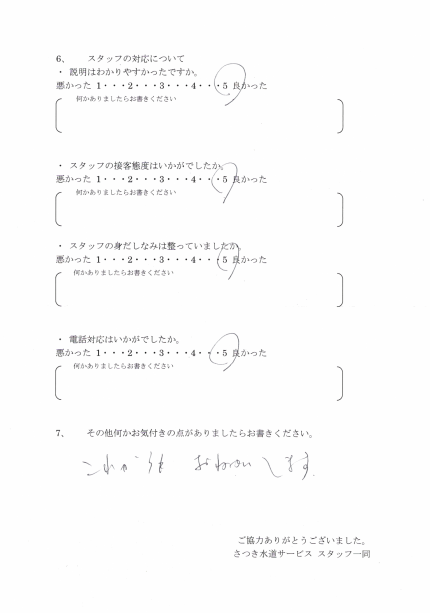 6、　スタッフの対応について
・ 説明はわかりやすかったですか。
悪かった 1・・・2・・・3・・・4・・・5 良かった
何かありましたらお書きください
・ スタッフの接客態度はいかがでしたか。
悪かった 1・・・2・・・3・・・4・・・5 良かった
何かありましたらお書きください
・ スタッフの身だしなみは整っていましたか。
悪かった 1・・・2・・・3・・・4・・・5 良かった
何かありましたらお書きください
・ 電話対応はいかがでしたか。
悪かった 1・・・2・・・3・・・4・・・5 良かった
何かありましたらお書きください
7、　その他何かお気付きの点がありましたらお書きください。
これからも おねがいします.
ご協力ありがとうございました。
さつき水道サービス スタッフ一同